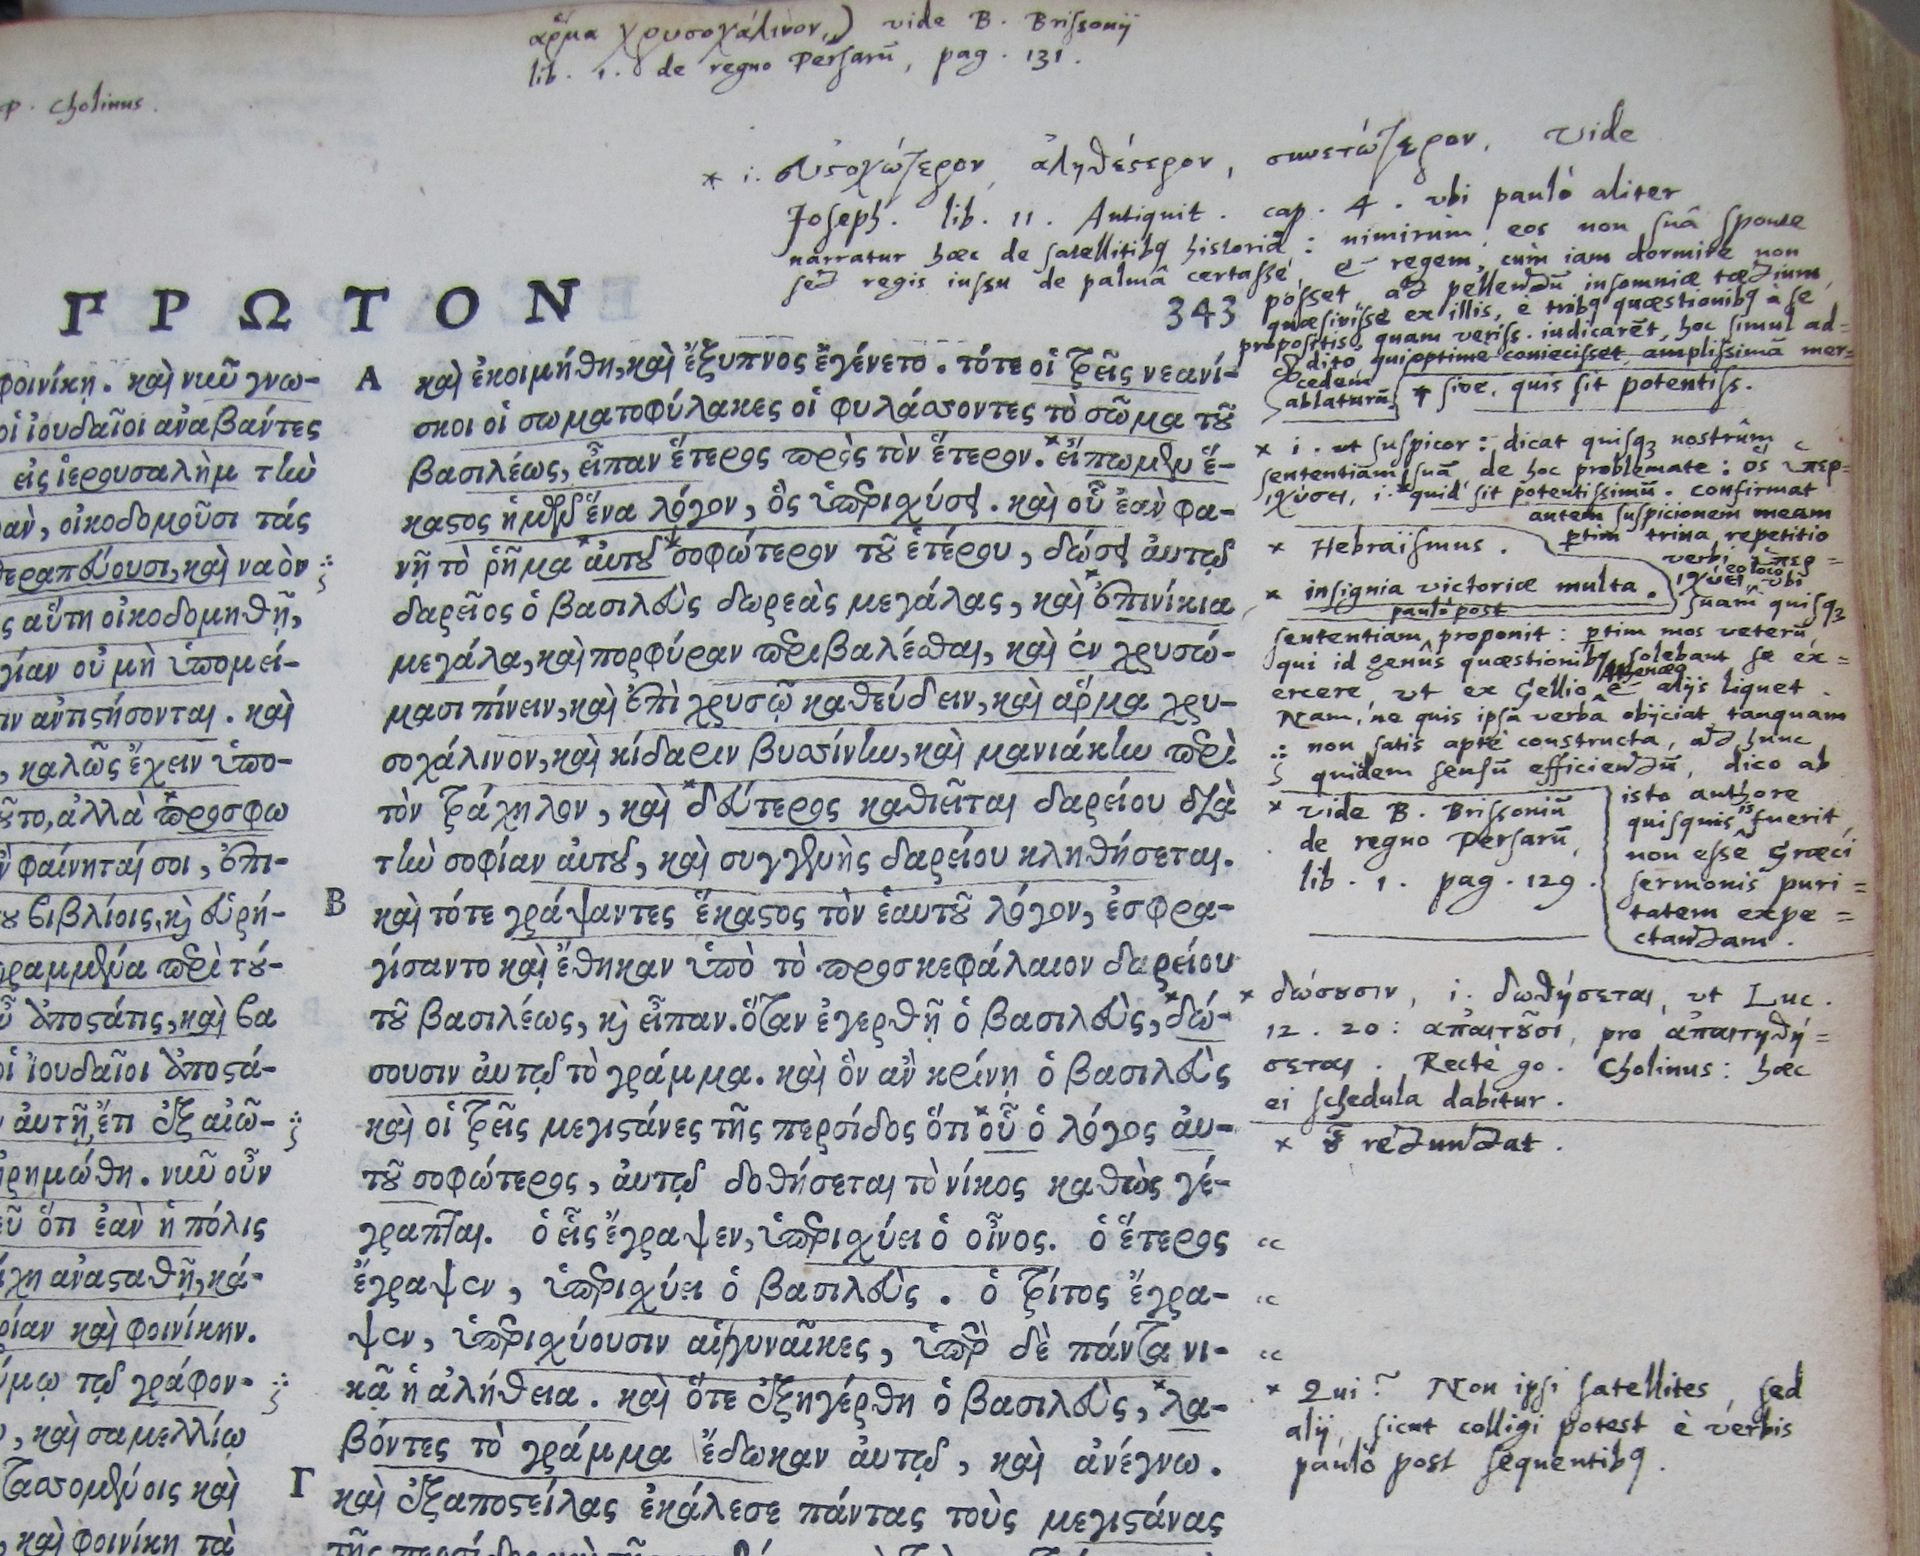 ἅρμα χρυσοχάλινον,) vide B. Brissonij
lib. 1. de regno Persarū, pag. 131.
P. Cholinus.
* i. σοφώτερον, ἀληθέστερον, συνετώτερον. Vide
Joseph. lib. 11. Antiquit. cap. 4. vbi paulò aliter
narratur hæc de satellitibꝫ historiā: nimirùm eos non suâ sponte
sed regis iussu de palmâ certasse, & regem, cùm iam dormire non
posset, ad pellendū insomniæ tædium,
quæsivisse ex illis, è tribꝫ quæstionibꝫ à se
propositis, quam veriss. iudicarēt, hoc simul ad-
dito qui optime coniecisset amplissimā mer-
cedem
ablaturū
* sive, quis sit potentiss.
ΠΡΩΤΟΝ 343
φοινίκῃ. καὶ νῦν γνω-
οἱ ἰουδαῖοι ἀναβάντες
εἰς ἱερουσαλὴμ τὴν
ὰν, οἰκοδομοῦσι τάς
θεραπεύουσι, καὶ ναὸν
ς αὕτη οἰκοδομηθῇ,
γίαν οὐ μὴ ὑπομεί-
ιν ἀντιστήσονται. καὶ
, καλῶς ἔχειν ὑπο-
οῦτο, ἀλλὰ προσφω
ν φαίνηταί σοι, ἐπι-
ου βιβλίοις, καὶ εὑρή-
γραμμένα περὶ τού-
ἀποστάτις, καὶ βα
οἱ ἰουδαῖοι ἀποστά-
ν αὐτῇ ἔτι ἐξ αἰῶ-
ἠρημώθη. νῦν οὖν
ὅτι ἐὰν ἡ πόλις
χη ἀνασταθῇ, κά-
ρίαν καὶ φοινίκην.
ύμῳ τῷ γράφον-
, καὶ σαμελλίῳ
τασσομένοις καὶ
, καὶ φοινίκῃ τὰ
Α καὶ ἐκοιμήθη, καὶ ἔξυπνος ἐγένετο. τότε οἱ τρεῖς νεανί-
σκοι οἱ σωματοφύλακες οἱ φυλάσσοντες τὸ σῶμα τοῦ
βασιλέως, εἶπαν ἕτερος πρὸς τὸν ἕτερον. εἴπωμεν ἕ-
καστος ἡμῶν ἕνα λόγον, ὃς ὑπερισχύσει. καὶ οὗ ἐὰν φα-
νῇ τὸ ῥῆμα αὐτοῦ σοφώτερον τοῦ ἑτέρου, δώσει αὐτῷ
δαρεῖος ὁ βασιλεὺς δωρεὰς μεγάλας, καὶ ἐπινίκια
μεγάλα, καὶ πορφύραν περιβαλέσθαι, καὶ ἐν χρυσώ-
μασι πίνειν, καὶ ἐπὶ χρυσῷ καθεύδειν, καὶ ἅρμα χρυ-
σοχάλινον, καὶ κίδαριν βυσσίνην, καὶ μανιάκην περὶ
τὸν τράχηλον, καὶ δεύτερος καθιεῖται δαρείου διὰ
τὴν σοφίαν αὐτοῦ, καὶ συγγενὴς δαρείου κληθήσεται.
Β καὶ τότε γράψαντες ἕκαστος τὸν ἑαυτοῦ λόγον, ἐσφρα-
γίσαντο καὶ ἔθηκαν ὑπὸ τὸ προσκεφάλαιον δαρείου
τοῦ βασιλέως, καὶ εἶπαν. ὅταν ἐγερθῇ ὁ βασιλεὺς, δώ-
σουσιν αὐτῷ τὸ γράμμα. καὶ ὃν ἂν κρίνῃ ὁ βασιλεὺς
καὶ οἱ τρεῖς μεγιστάνες τῆς περσίδος ὅτι οὗ ὁ λόγος αὐ-
τοῦ σοφώτερος, αὐτῷ δοθήσεται τὸ νίκος καθὼς γέ-
γραπται. ὁ εἷς ἔγραψεν, ὑπερισχύει ὁ οἶνος. ὁ ἕτερος
ἔγραψεν, ὑπερισχύει ὁ βασιλεὺς. ὁ τρίτος ἔγρα-
ψεν, ὑπερισχύουσιν αἱ γυναῖκες, ὑπὲρ δὲ πάντα νι-
κᾷ ἡ ἀλήθεια. καὶ ὅτε ἐξηγέρθη ὁ βασιλεὺς, λα-
βόντες τὸ γράμμα ἔδωκαν αὐτῷ, καὶ ἀνέγνω.
Γ καὶ ἐξαποστείλας ἐκάλεσε πάντας τοὺς μεγιστάνας
τῆς περσίδος καὶ τῆς
* i. vt suspicor: dicat quisqꝫ nostrûm
sententiam suā de hoc problemate: ὃς ὑπερ-
ισχύσει, i. quid sit potentissimū. Confirmat
autem suspicionem meam
ptim trina repetitio
verbi ὑπερ-
ισχύει eo loco, vbi
suam quisqꝫ
* Hebraïsmus.
* insignia victoriæ multa.
paulò post
sententiam proponit: ptim mos veterū,
qui id genus quæstionibꝫ solebant se ex-
ercere, vt ex Gellio Athenæo & alijs liquet.
Nam, ne quis ipsa verba obijciat, tanquam
non satis aptè constructa, ad hunc
quidem sensū efficiendū, dico ab
isto authore
quisquis is fuerit,
non esse Græci
sermonis puri-
tatem expe-
ctandam.
* vide B. Brissoniū
de regno Persarū,
lib. 1. pag. 129.
* δώσουσιν, i. δωθήσεται, vt Luc.
12. 20: ἀπαιτοῦσι, pro ἀπαιτηθή-
σεται. Rectè go. Cholinus: hæc
ei schedula dabitur.
* οὗ redundat.
* Qui? Non ipsi satellites, sed
alij, sicut colligi potest è verbis
paulò post sequentibꝫ.